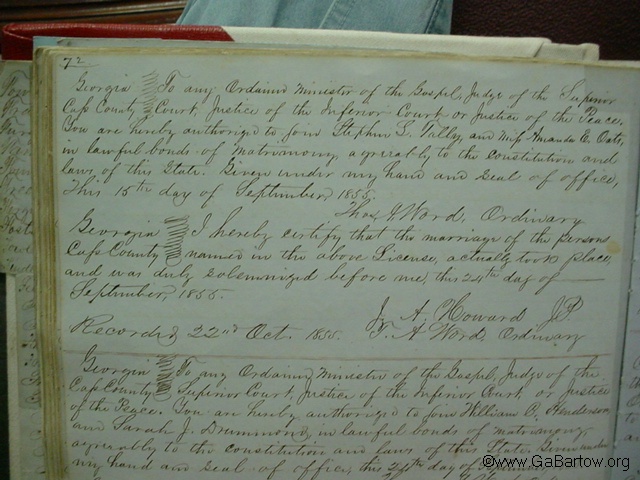 72
Georgia To any Ordained Minister of the Gospel, Judge of the Superior
Cass County Court, Justice of the Inferior Court or Justice of the Peace.
You are hereby authorized to join Stephen L. Tilley, and Miss Amanda E. Oats,
in lawful bonds of matrimony, agreeably to the constitution and
laws of this State. Given under my hand and seal of office,
This 15th day of September, 1855.
Thos A Word, Ordinary
Georgia I hereby certify that the marriage of the persons
Cass County named in the above License, actually took place,
and was duly solemnized before me, this 24th day of
September, 1855.
J. A. Howard JP
Recorded 22nd Oct. 1855. T. A Word, Ordinary
Georgia To any Ordained Minister of the Gospel, Judge of the
Cass County Superior Court, Justice of the Inferior Court, or Justice
of the Peace. You are hereby authorized to join William C. Henderson
and Sarah J. Drummond, in lawful bonds of matrimony,
agreeably to the constitution and laws of this State. Given under
my hand and seal of office, this 24th day of September
©www.GaBartow.org